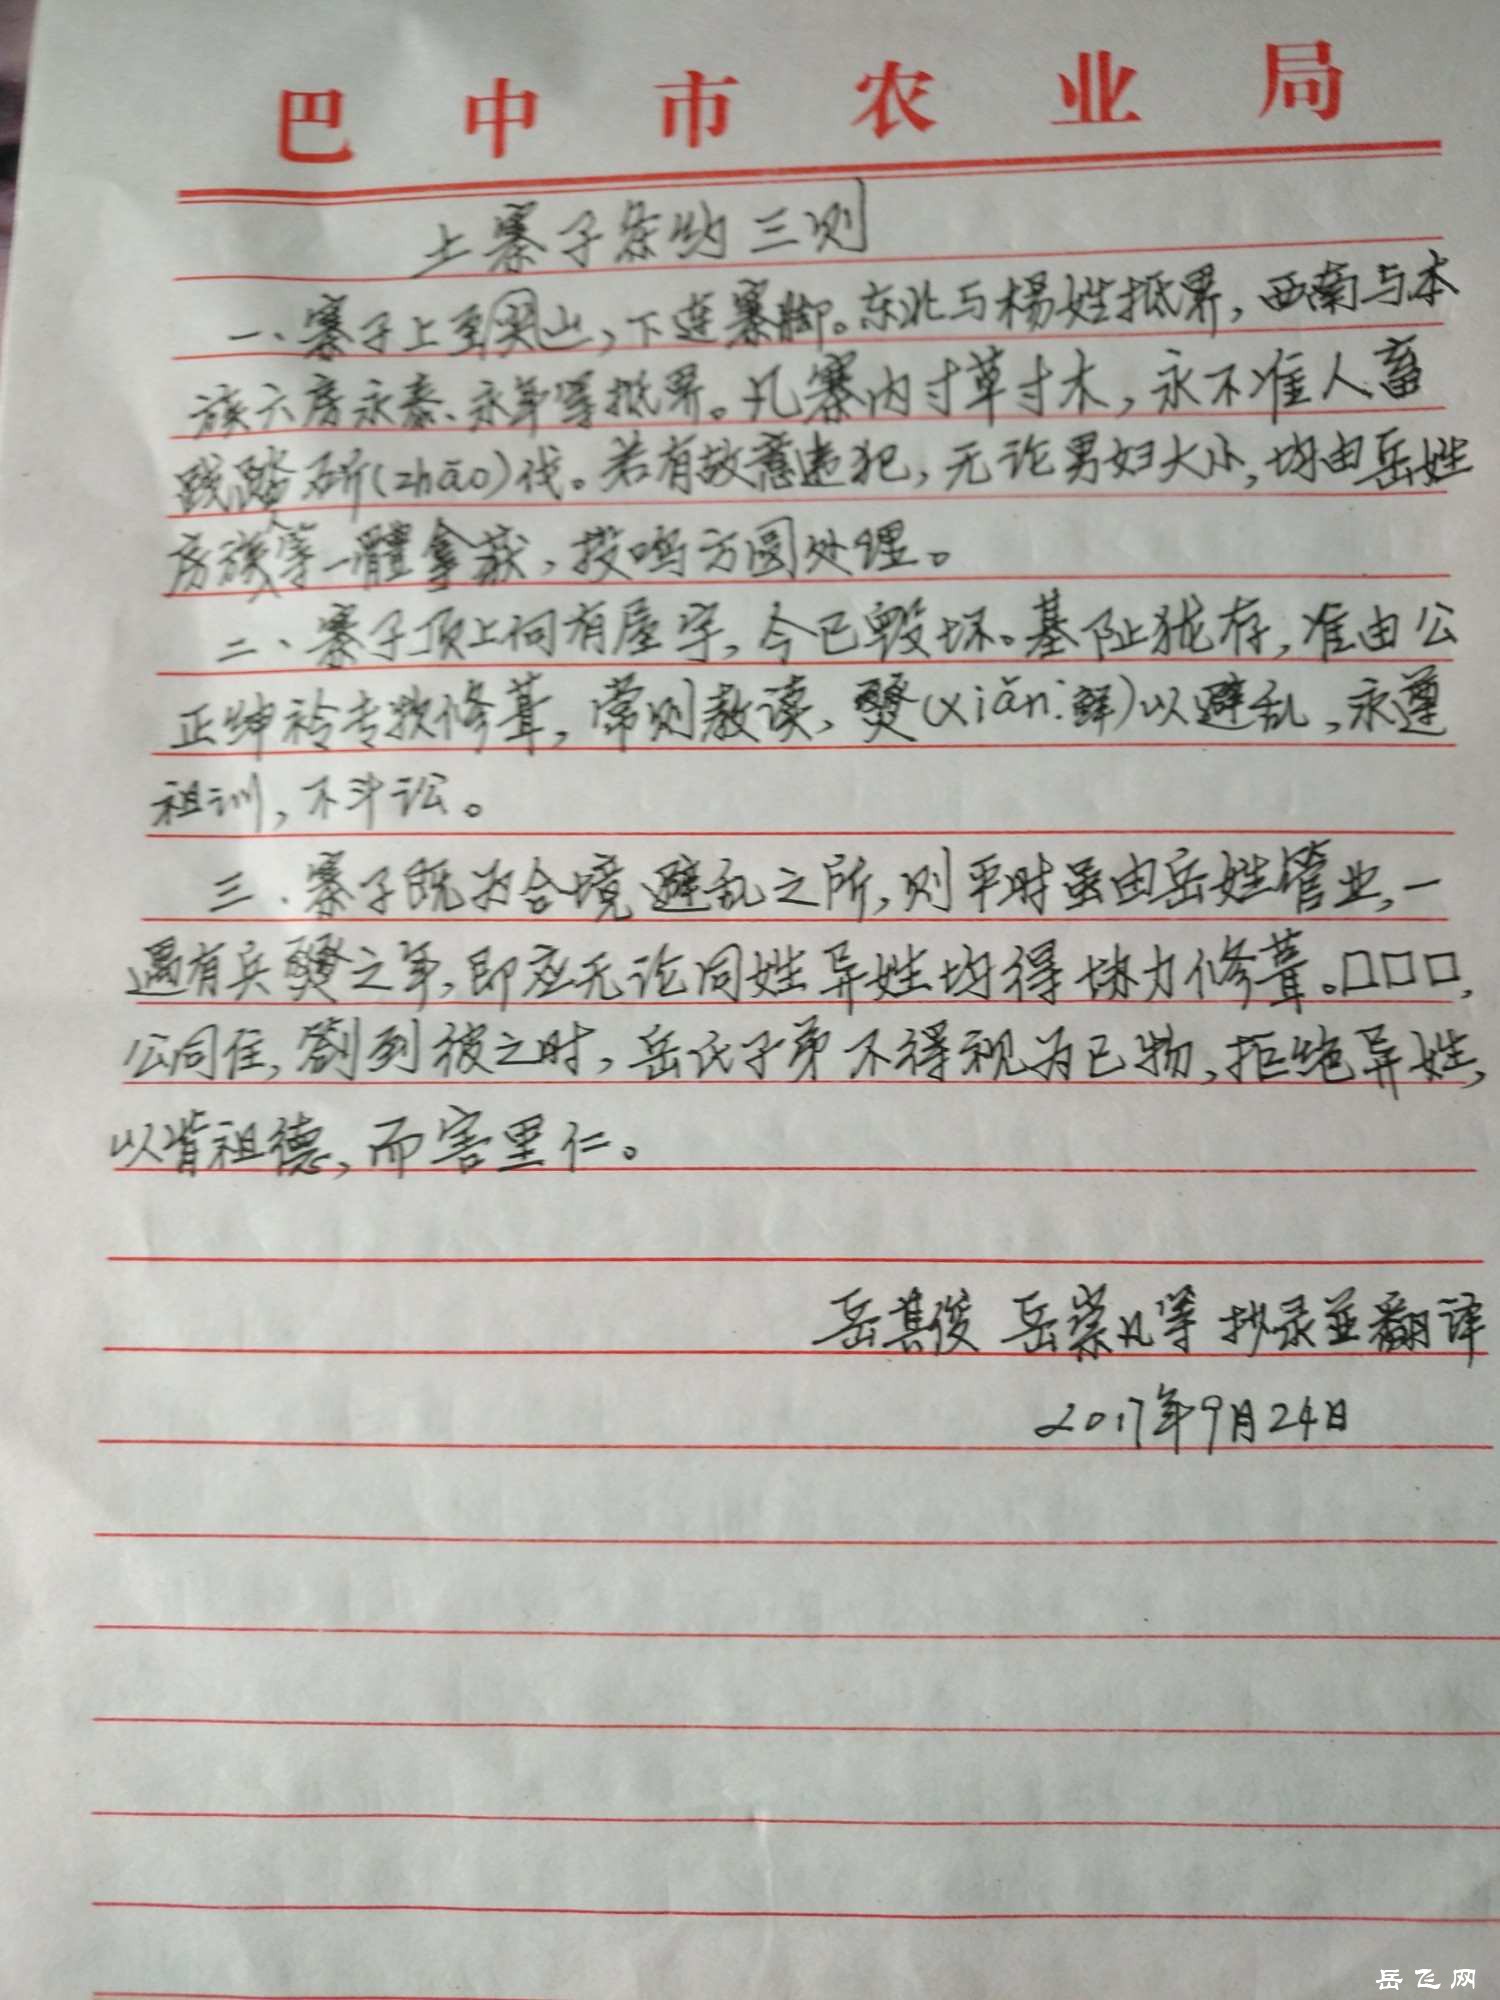 巴中市农业局
土寨子条约三则
一、寨子上至尖山，下连寨脚。东北与杨姓抵界，西南与本
族六房永泰、永年等抵界。凡寨内寸草寸木，永不准人畜
践踏斫(zhāo)伐。若有故意违犯，无论男妇大小，均由岳姓
房族等一體拿获，投鸣方圆处理。
二、寨子顶上向有屋宇，今已毁坏。基阯犹存，准由公
正绅衿专款修葺，常则教读，燹(xiǎn:鲜)以避乱，永遵
祖训，不斗讼。
三、寨子既为合境避乱之所，则平时虽由岳姓管业，一
遇有兵燹之年，即应无论同姓异姓均得协力修葺。□□□，
公同住，劄到彼之时，岳氏子弟不得视为己物，拒绝异姓，
以背祖德，而害里仁。
岳其俊 岳崇凡等 抄录並翻译
2017年9月24日
岳飞网